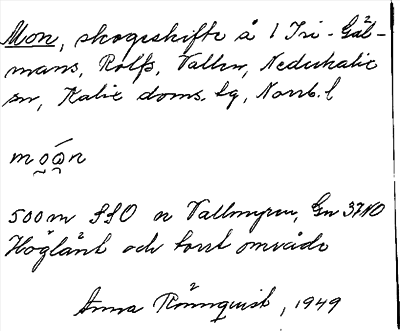 Mon, skogsskifte å 1 Tri-Gål-
mans, Rolfs, Vallen, Nederkalix
sn, Kalix doms. lg, Norrb. l
mo̯ó̯n
500 m SSO om Vallmyren, Gn 37 NO
Höglänt och torrt område
Anna Rönnquist, 1949